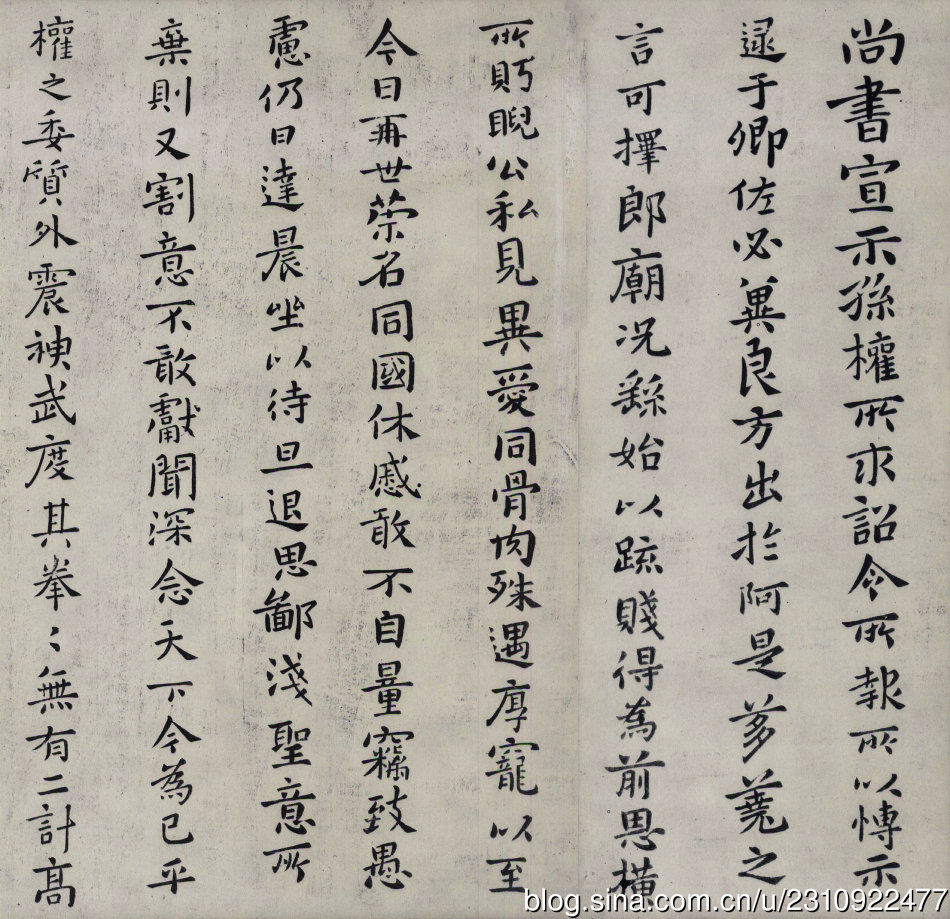 尚書宣示孫權所求詔令所報所以博示
逮于卿佐必冀良方出於阿是芻蕘之
言可擇郎廟況繇始以疏賤得為前恩橫
所眄睨公私見異愛同骨肉殊遇厚寵以至
今日再世榮名同國休慼敢不自量竊致愚
慮仍日達晨坐以待旦退思鄙淺聖意所
棄則又割意不敢獻聞深念天下今為已平
權之委質外震神武度其拳〻無有二計高
blog.sina.com.cn/u/2310922477